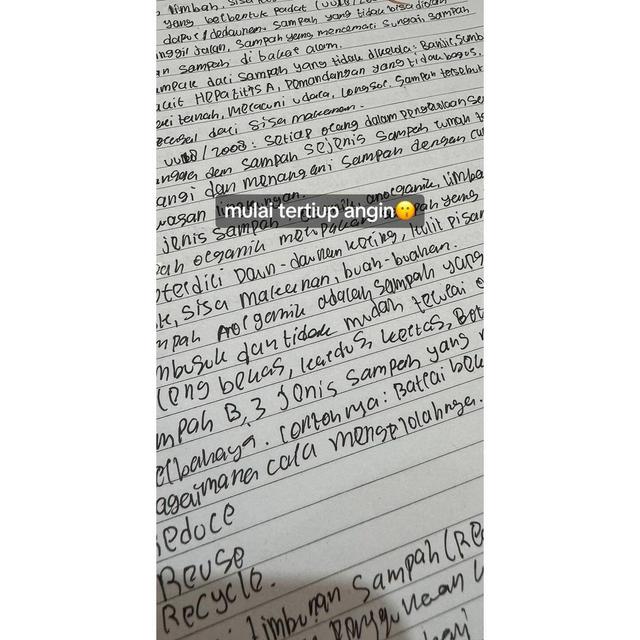 limbah, sisa
yang berbentuk padat (UU18/200
dapur/dedaunan, sampah yang tidak bisa diolah
nggir jalan, sampah yang mencemari sungai, sampah
an sampah di bakar alam.
ampak dari sampah yang tidak dikelola: Banjir, Sumb
akit HEPatitis A, Pemandangan yang tidak bagus,
ri tanah, Meracuni udara, Longsor, Sampah tersebut
berasal dari sisa makanan.
UU18/2008: setiap orang dalam pengelolaan se
angga dan sampah sejenis sampah rumah ta
angi dan menangani sampah dengan ca
wasan lingkungan.
mulai tertiup angin😗
jenis sampah anorganik, limba
pah organik merupakan sampah yang
terdiri Daun-daunan kering, kulit pisan
k, sisa makanan, buah-buahan.
mpah Anorganik adalah sampah yang
mbusuk dan tidak mudah terurai
leng bekas, kardus, kertas, Bot
mpah B,3 Jenis sampah yang
erbahaya. Contohnya: Batrai bek
agaimana cara mengelolahnya.
Reduce
Reuse
Recycle.
Timbunan Sampah (Re
Penggunaan